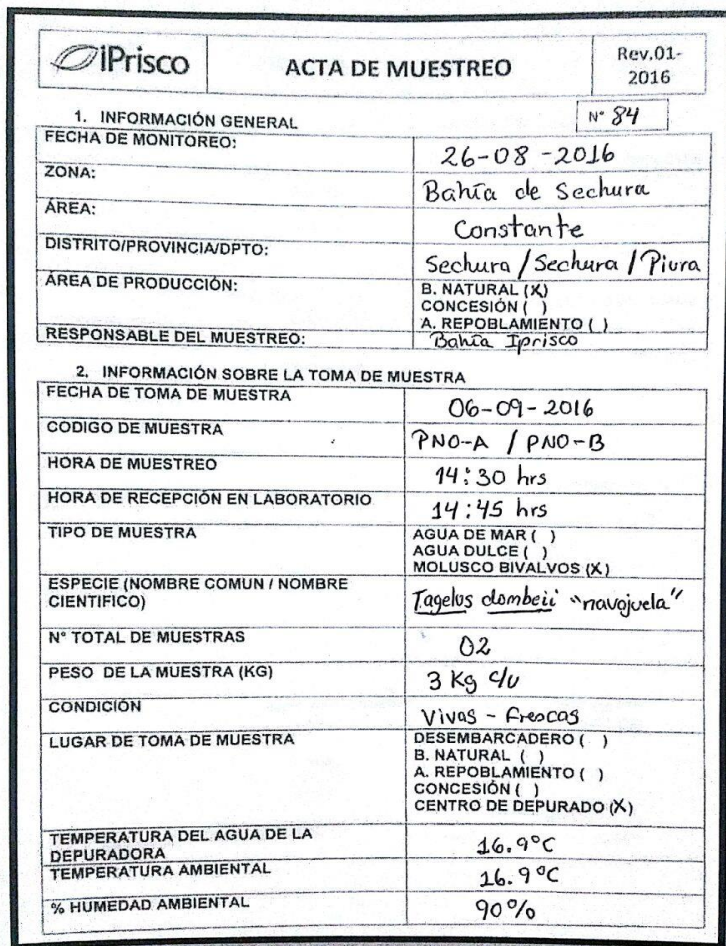 iPrisco
ACTA DE MUESTREO
Rev.01-
2016
1. INFORMACIÓN GENERAL
N° 84
FECHA DE MONITOREO:
26-08-2016
ZONA:
Bahía de Sechura
ÁREA:
Constante
DISTRITO/PROVINCIA/DPTO:
Sechura / Sechura / Piura
ÁREA DE PRODUCCIÓN:
B. NATURAL (X)
CONCESIÓN ( )
A. REPOBLAMIENTO ( )
RESPONSABLE DEL MUESTREO:
Bahía Iprisco
2. INFORMACIÓN SOBRE LA TOMA DE MUESTRA
FECHA DE TOMA DE MUESTRA
06-09-2016
CODIGO DE MUESTRA
PNO-A / PNO-B
HORA DE MUESTREO
14:30 hrs
HORA DE RECEPCIÓN EN LABORATORIO
14:45 hrs
TIPO DE MUESTRA
AGUA DE MAR ( )
AGUA DULCE ( )
MOLUSCO BIVALVOS (X)
ESPECIE (NOMBRE COMUN / NOMBRE
CIENTIFICO)
Tagelus dombeii "navajuela"
N° TOTAL DE MUESTRAS
02
PESO DE LA MUESTRA (KG)
3 Kg c/u
CONDICIÓN
Vivas - Frescas
LUGAR DE TOMA DE MUESTRA
DESEMBARCADERO ( )
B. NATURAL ( )
A. REPOBLAMIENTO ( )
CONCESIÓN ( )
CENTRO DE DEPURADO (X)
TEMPERATURA DEL AGUA DE LA
DEPURADORA
16.9°C
TEMPERATURA AMBIENTAL
16.9°C
% HUMEDAD AMBIENTAL
90%